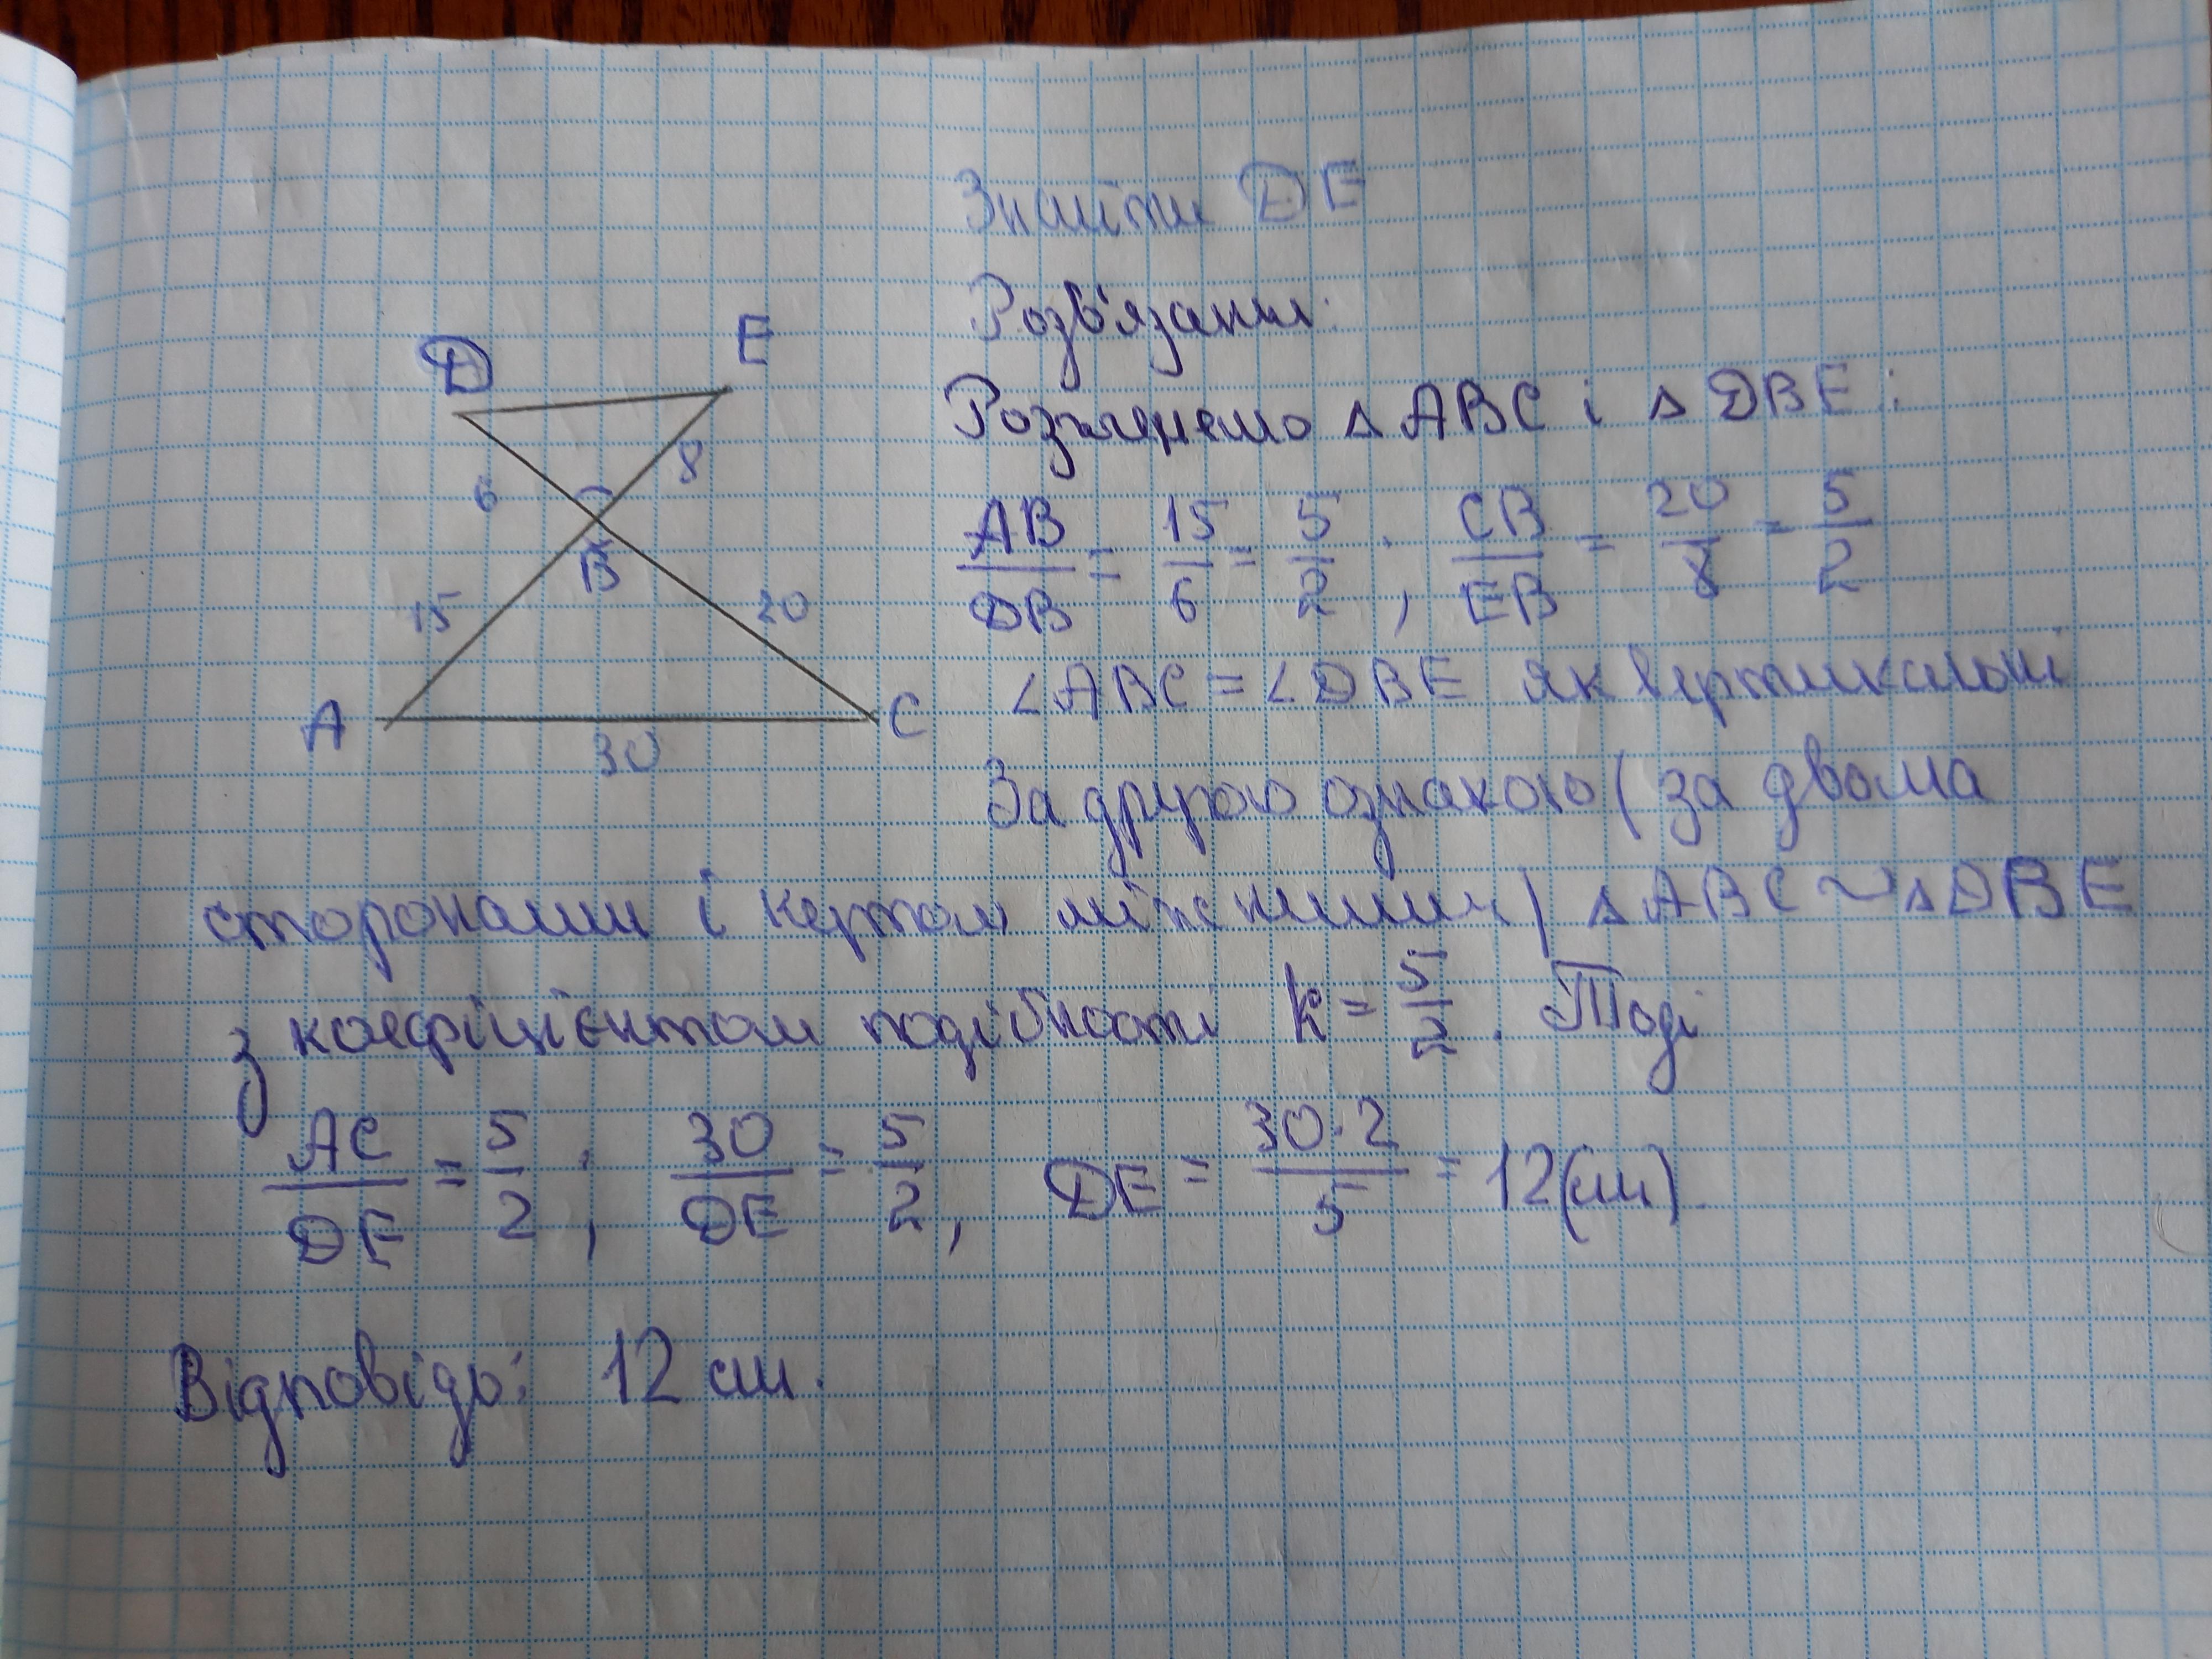 Знайти DE
Розв'язання.
Розглянемо △ABC і △DBE:
D E
6 8
B
15 20
A C
30
AB/DB = 15/6 = 5/2; CB/EB = 20/8 = 5/2
∠ABC = ∠DBE як вертикальні
За другою ознакою (за двома
сторонами і кутом між ними) △ABC ~ △DBE
з коефіцієнтом подібності k = 5/2. Тоді
AC/DE = 5/2; 30/DE = 5/2, DE = 30·2/5 = 12(см).
Відповідь: 12 см.